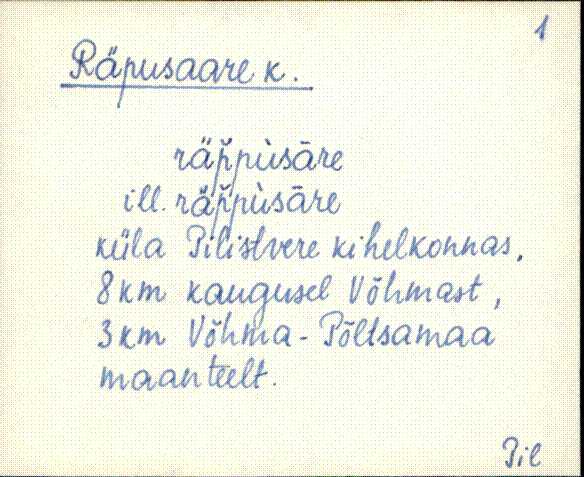 1
Räpusaare k.
räp̆pùsāre
ill. räp̆pùsāre
küla Pilistvere kihelkonnas,
8 km kaugusel Võhmast,
3 km Võhma - Põltsamaa
maanteelt.
Pil